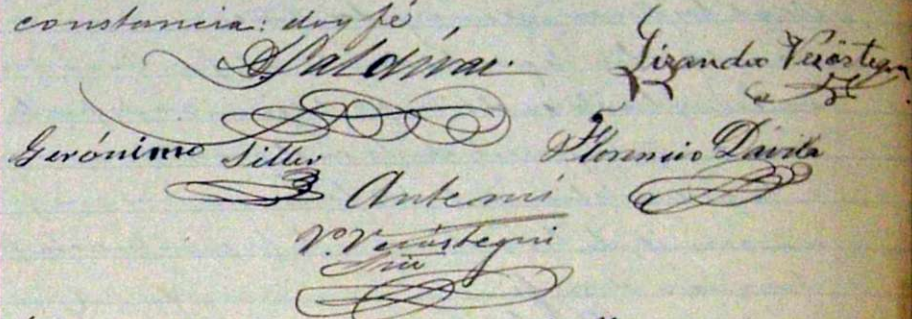 constancia: doy fé
Saldívar.
Lizandro Verástegui
Gerónimo Siller
Florencio Dávila
Ante mí
V. Verástegui
Srio